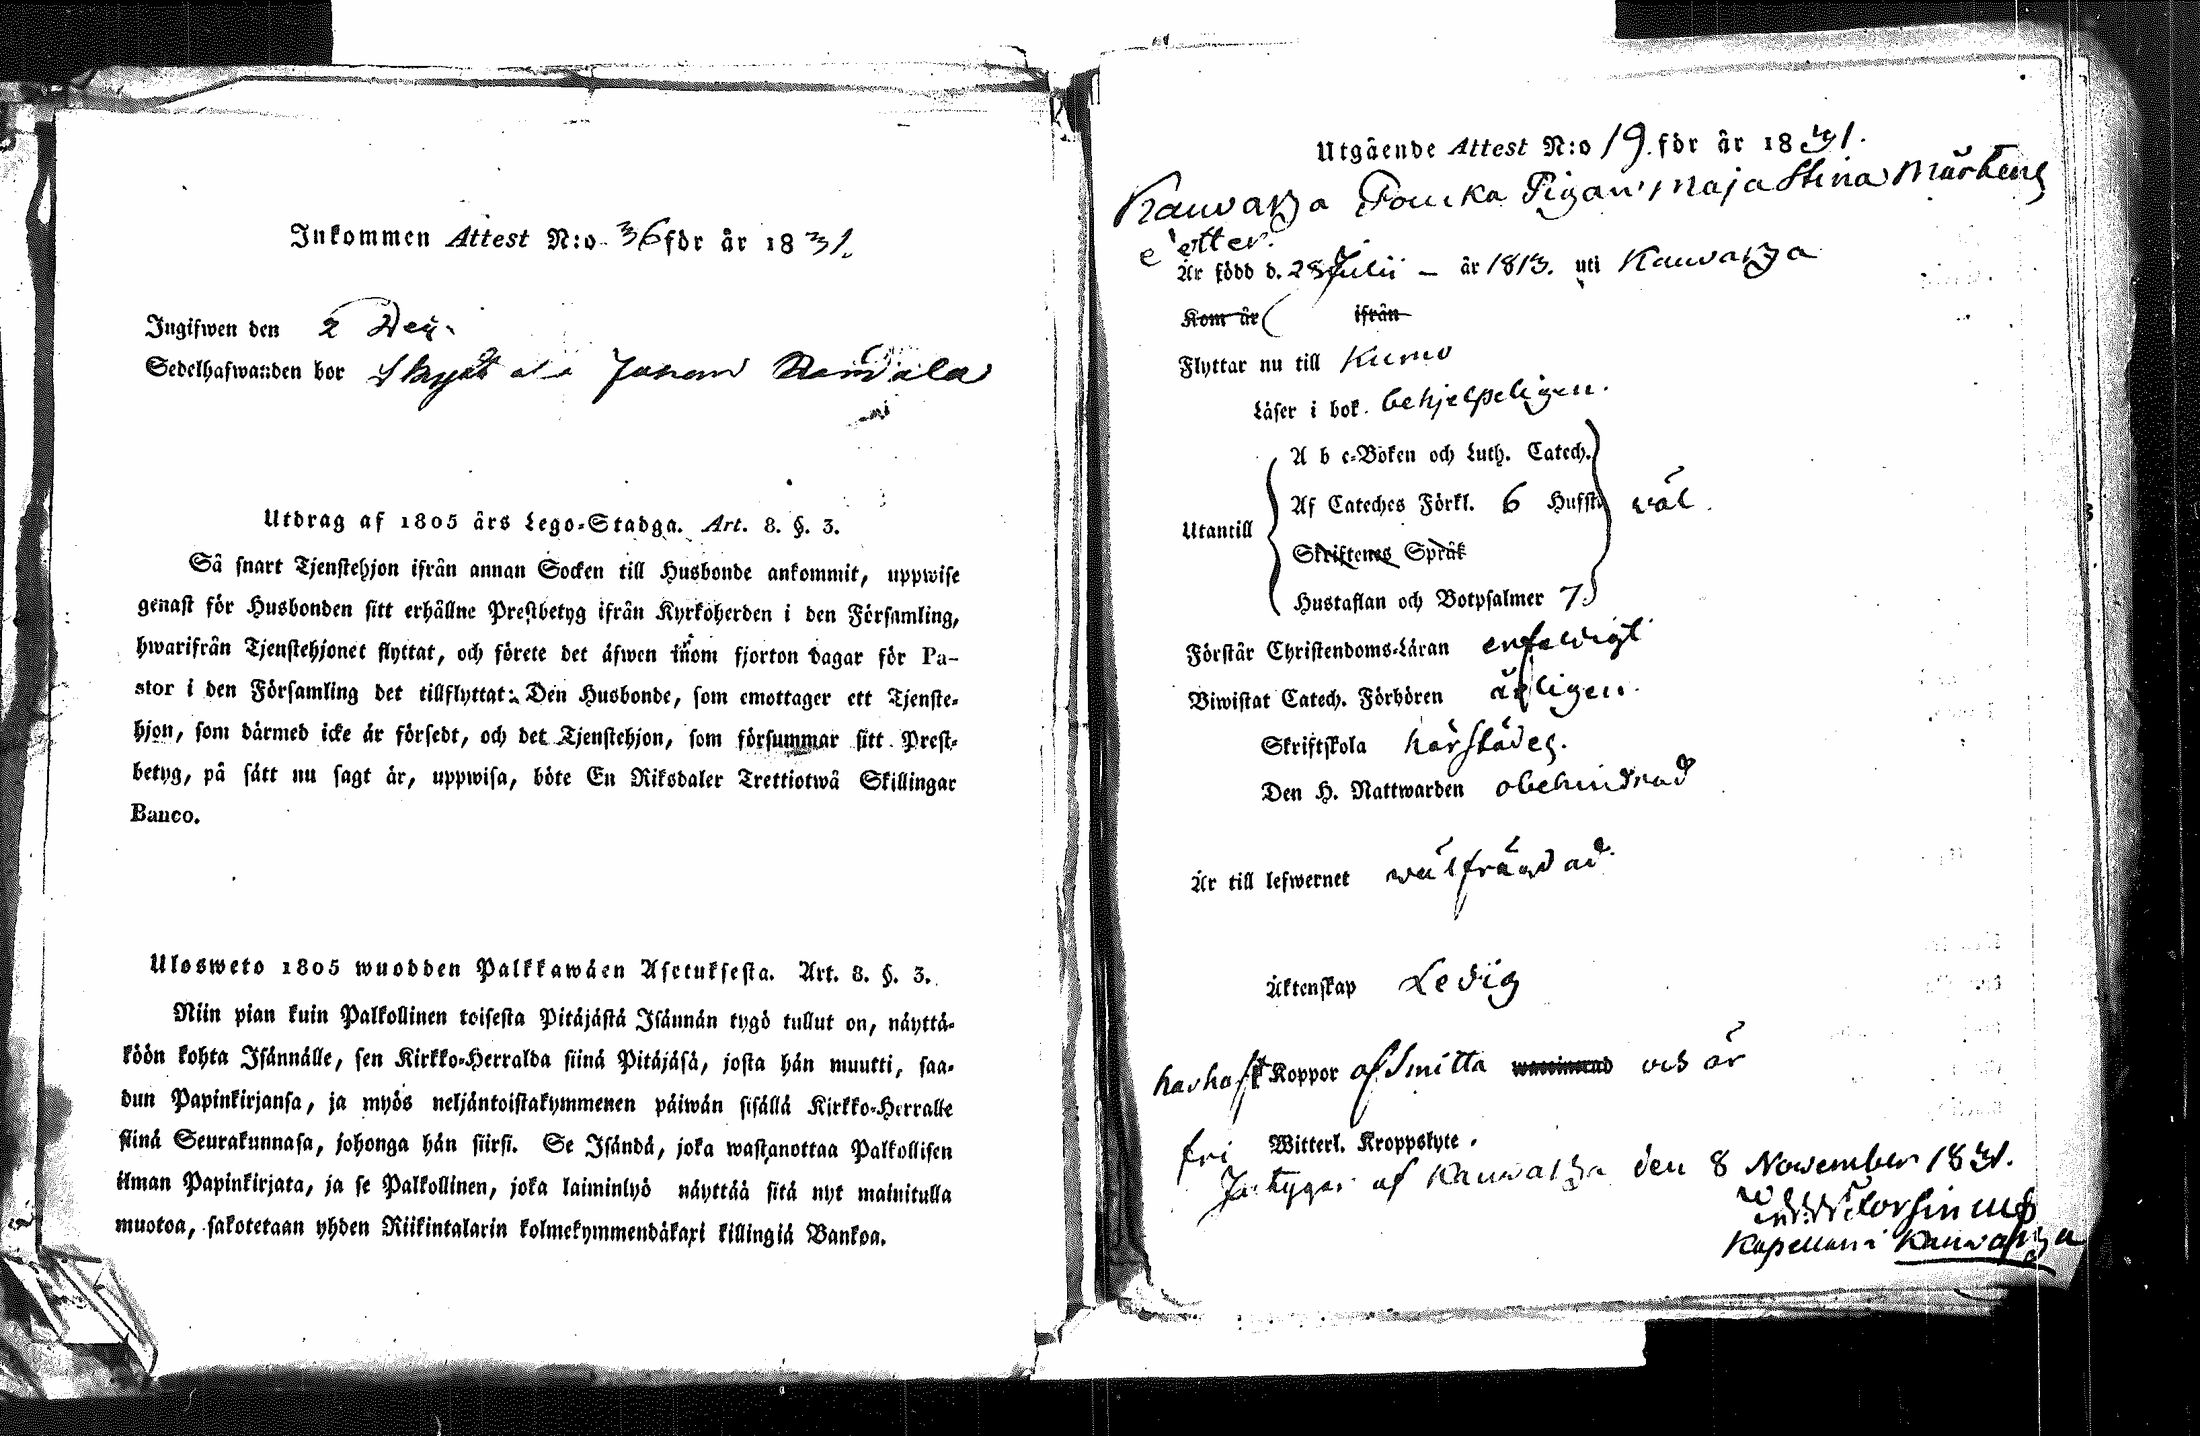 Inkommen Attest N:o 36 för år 1831.
Ingifwen den 2 Dec.
Sedelhafwanden bor Johan
Utdrag af 1805 års Lego-Stadga. Art. 8. §. 3.
Så snart Tjenstehjon ifrån annan Socken till Husbonde ankommit, uppwise
genast för Husbonden sitt erhållne Prestbetyg ifrån Kyrkoherden i den Församling,
hwarifrån Tjenstehjonet flyttat, och förete det äfwen inom fjorton dagar för Pa-
stor i den Församling det tillflyttat: Den Husbonde, som emottager ett Tjenste-
hjon, som därmed icke är försedt, och det Tjenstehjon, som försummar sitt Prest-
betyg, på sätt nu sagt är, uppwisa, böte En Riksdaler Trettiotwå Skillingar
Banco.
Ulosweto 1805 wuodden Palkkawäen Asetuksesta. Art. 8. §. 3.
Niin pian kuin Palkollinen toisesta Pitäjästä Isännän tygö tullut on, näyttä-
köön kohta Isännälle, sen Kirkko-Herralda siinä Pitäjäsä, josta hän muutti, saa-
dun Papinkirjansa, ja myös neljäntoistakymmenen päiwän sisällä Kirkko-Herralle
siinä Seurakunnasa, johonga hän siirsi. Se Isändä, joka wastanottaa Palkollisen
ilman Papinkirjata, ja se Palkollinen, joka laiminlyö näyttää sitä nyt mainitulla
muotoa, sakotetaan yhden Riikintalarin kolmekymmendäkaxi killingiä Bankoa.
Utgående Attest N:o 19. för år 1831.
Kauvatza Pigan Maja Stina Mårtens
dotter.
Är född d. 28 Julii – år 1813. uti Kauvatza
Kom år ifrån
Flyttar nu till Kumo
Läser i bok. behjelpeligen.
A b c-Boken och Luth. Catech.
Af Cateches Förkl. 6 Hufst. wäl.
Utantill
Skriftenes Språk
Hustaflan och Botpsalmer 7.
Förstår Christendoms-Läran enfaldigt
Biwistat Catech. Förhören årligen.
Skriftskola härstädes.
Den H. Nattwarden obehindrad
Är till lefwernet wälfrägdad.
Äktenskap Ledig
harhaft Koppor af Smitta waccinerad och är
fri Witterl. Kroppslyte.
Intygar af Kauvatza den 8 November 1831.
Florhinus
Kapellan i Kauvatza